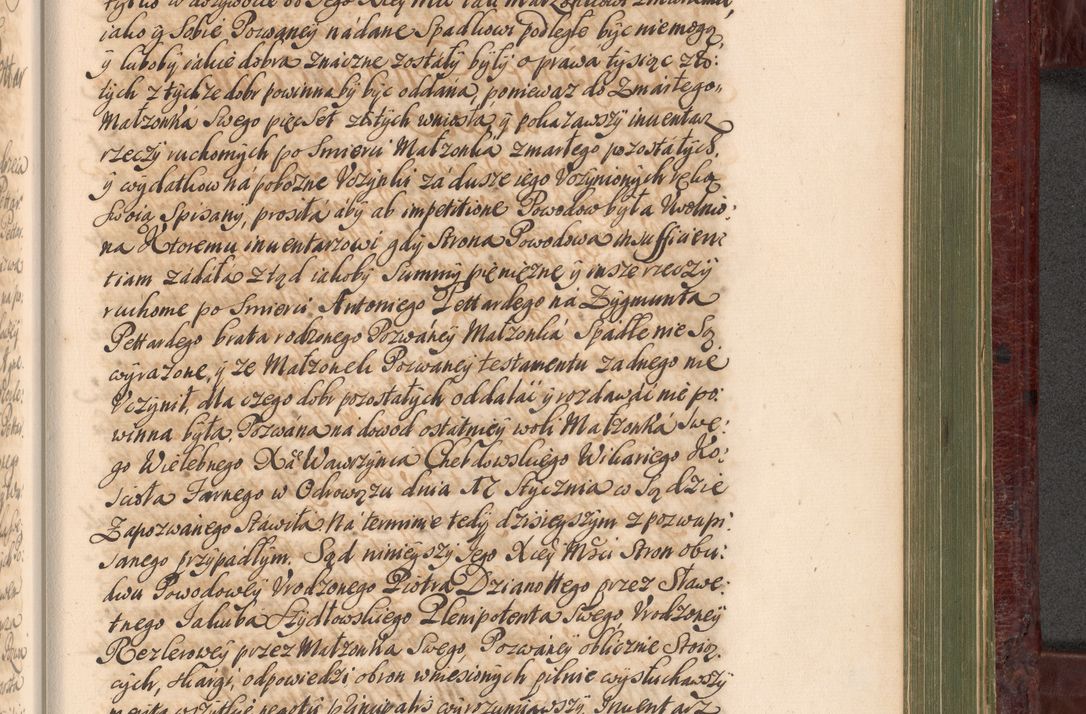 iako y Sobie Pozwaney nadane Spadkowi podległe być niemogą
y luboby iakie dobra znaczne zostały były o prawa tysiąc zło:
tych z tychże dobr powinna by być oddana, ponieważ do Zmarłego
Małzonka Swego pięćset złotych wniosła, y pokazawszy inwentarz
rzeczy ruchomych po Smierci Małzonka zmarłego pozostałych,
y wydatkow na pobożne Uczynki za dusze iego Uczynionych ręką
Swoią Spisany, prosiła aby ab impetitione Powodow była Uwolnio:
na Ktoremu inwentarzowi gdy Strona Powodowa insufficien
tiam zadała z tąd iakoby Summy pieniężne y insze rzeczy
ruchome po Smierci Antoniego Pettardego na Zygmunta
Pettardego brata rodzonego Pozwaney Małzonka Spadłe nie Są
wyrażone, y że Małzonek Pozwaney testamentu żadnego nie
Uczynił, dla czego dobr pozostałych oddalać y rozdawać nie po:
winna była. Pozwana na dowod ostatniey woli Małzonka Swe:
go Wielebnego Xa Wawrzynca Chebdowskiego Wikariego Ko:
scioła Farnego w Odrowążu dnia 17 Stycznia w Sądzie
Zapozwanego Stawiła Na terminie tedy dzisieyszym z pozwu pi:
sanego przypadłym. Sąd ninieyszy Jego Xcey Mści Stron obu:
dwu Powodowey Urodzonego Piotra Dzianottego przez Sławe:
tnego Jakuba Szydłowskiego Plenipotenta Swego, Urodzoney
Rezlerowey przez Małzonka Swego, Pozwaney oblicznie Stoią
cych, Skargi, odpowiedzi obron wniesionych pilnie wysłuchawszy